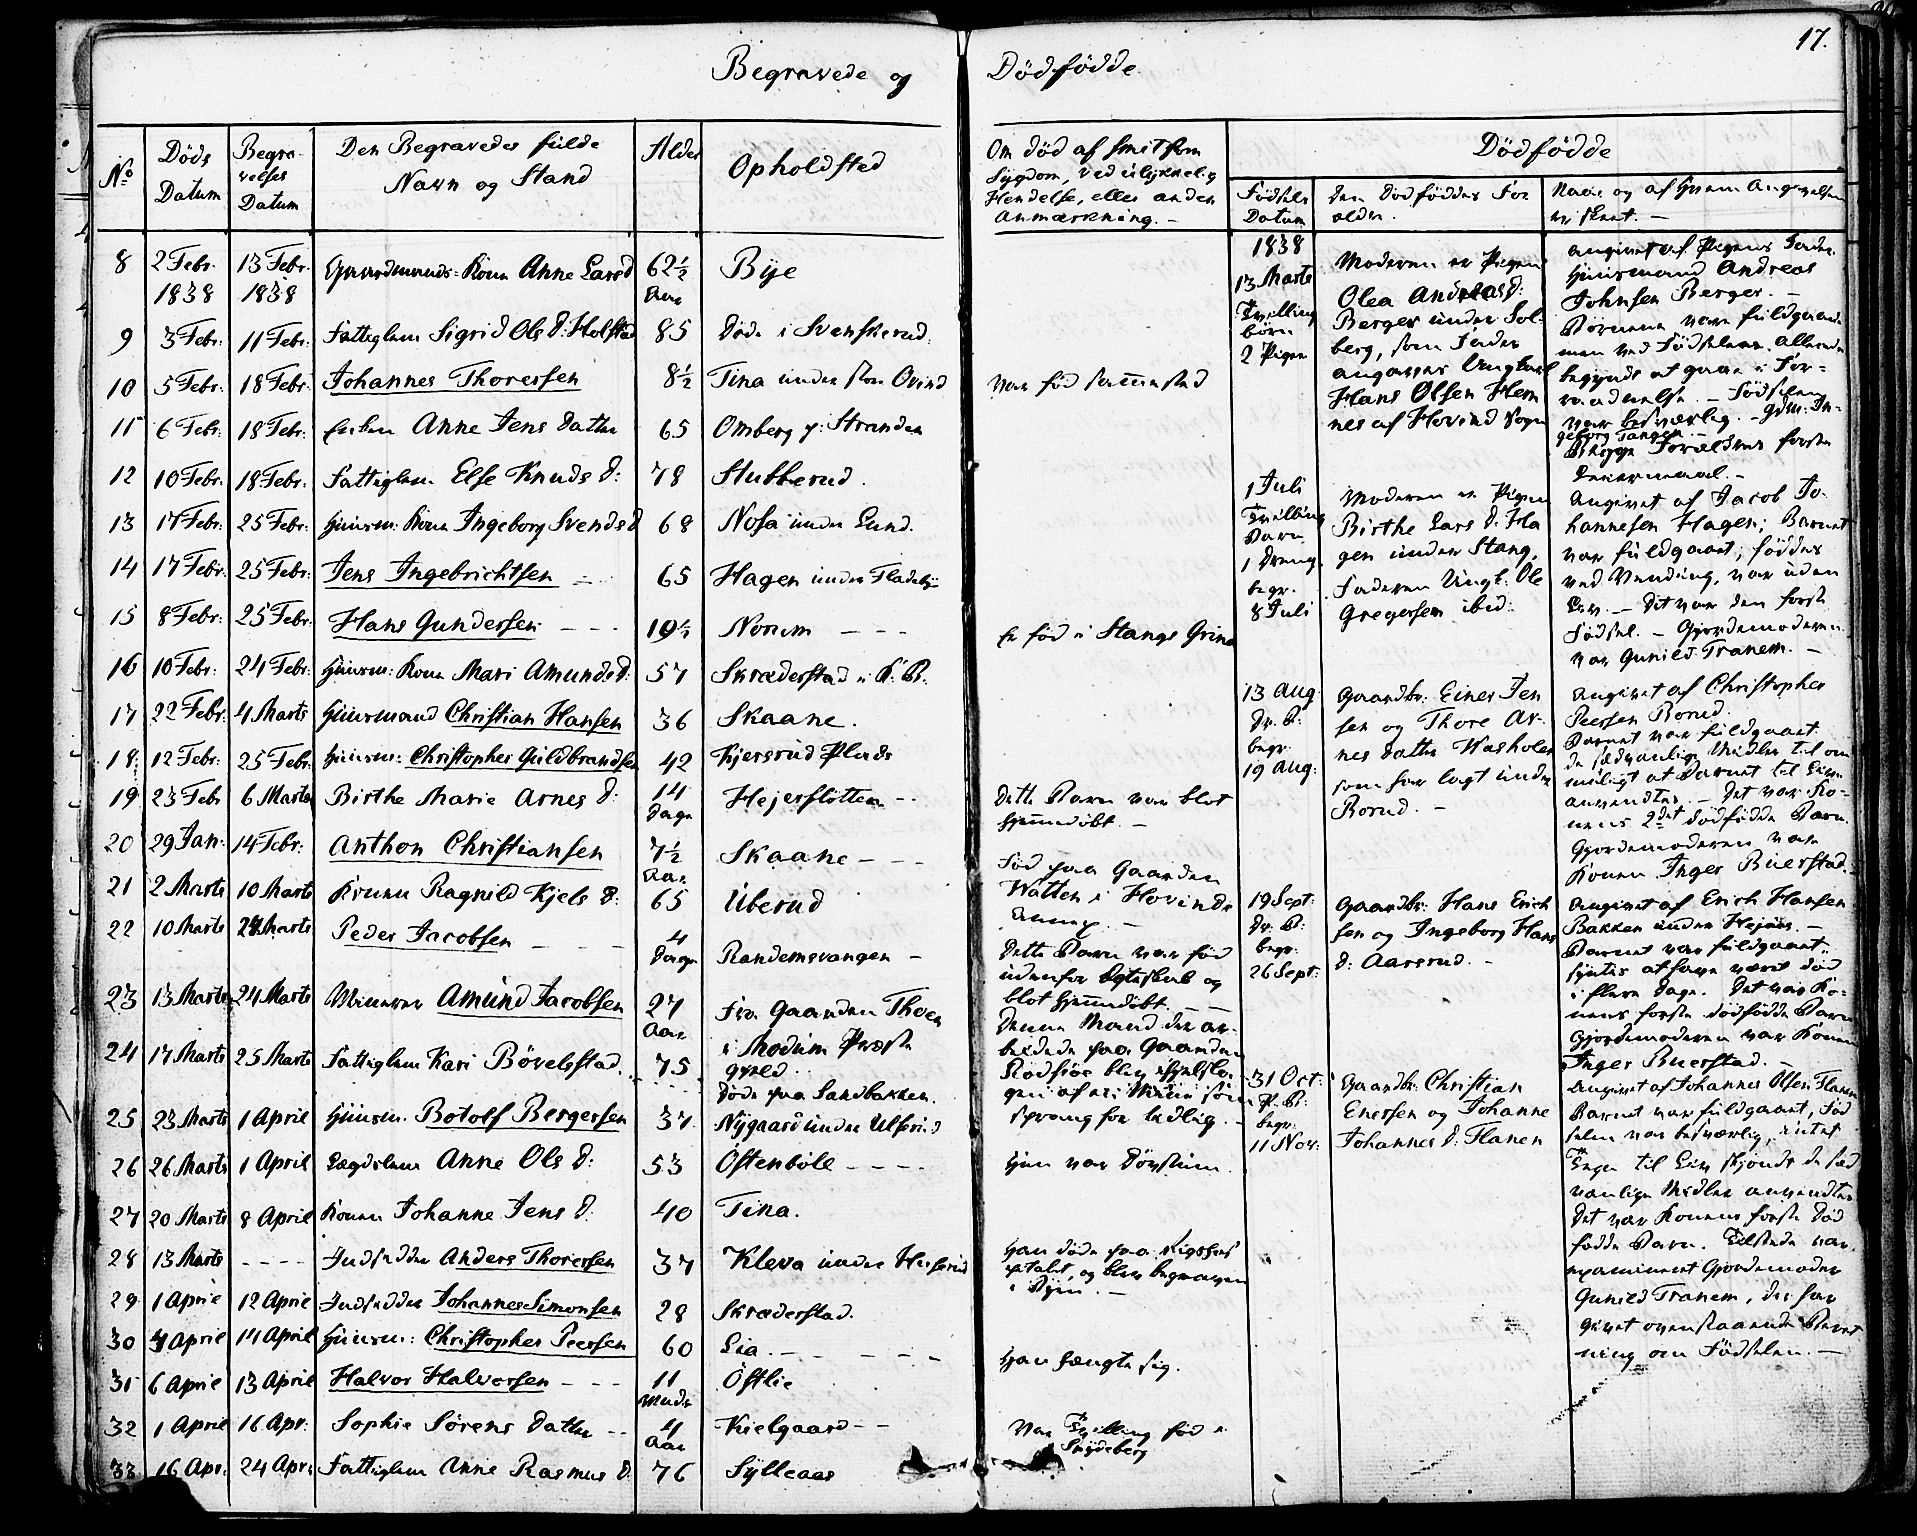 17.
Begravede og Dödfödde
No
Döds Datum
Begravelses Datum
Den Begravedes fulde Navn og Stand
Alder
Opholdsted
Om död af smitsom
Sygdom, ved ulykkelig
Hendelse, eller anden
Anmærkning. –
Dödfödde
Födsels Datum
Den Dödföddes Forældre.
Naar og af hvem Angivelsen er skeet. –
8 2 Febr. 1838 13 Febr. 1838 Gaardmands-Kone Anne Larsd 62½ Aar Bye
9 3 Febr: 11 Febr: Fattiglem Sigrid Ols D: Holstad 85 Döde i Svenskerud.
10 5 Febr: 18 Febr: Johannes Thoressen 8½ Tina under store Ovind var föd sammested
11 6 Febr: 18 Febr: Enken Anne Jens Datter 65 Omberg p: Stranden
12 10 Febr: 18 Febr: Fattiglem Else Knuds D: 78 Stubberud.
13 17 Febr. 25 Febr: Huusm: Kone Ingeborg Svends d 68 Nosa under Lund.
14 17 Febr. 25 Febr: Jens Ingebrichtsen 65 Hagen under Fladeby
15 8 Febr: 25 Febr: Hans Gundersen 10½ Norum Er föd i Stangs Grind
16 10 Febr: 24 Febr: Huusm: Kone Mari Amunds D: 57 Skræderstad i K. B.
17 22 Febr: 4 Marts Huusmand Christian Hansen 36 Skaane.
18 12 Febr: 25 Febr: Huusm: Christopher Guldbrandsen 42 Kjersrud Plads
19 23 Febr 6 Marts Birthe Marie Arnes D: 14 Dage Hejerslotten Dette Barn var blot
hjemmedöbt. –
20 29 Jan: 14 Febr: Anthon Christiansen 7½ Aar Skaane Föd paa Gaarden
Watten i Hovinds
21 2 Marts 10 Marts Konen Ragnild Kjels D: 65 Uberud
22 10 Marts 24 Marts Peder Jacobsen 4 Dage Randemsvangen Dette Barn var föd
udenfor Egteskab og
blot hjemmedöbt. –
23 13 Marts 24 Marts Minerer Amund Jacobsen 27 Aar Fra Gaarden Thoen
i Modum Præste
gjeld. Denne Mand der ar-
beidede paa Gaarden
24 17 Marts 25 Marts Fattiglem Kari Bövelstad. 75 Döde paa Sandbakken.
gen af en Mine som
sprang for tidlig. –
25 23 Marts 1 April Huusm: Botolf Bergersen 37 Nygaard under Ulfsrud
26 26 Marts 1 April Lægdslem Anne Ols D: 53 Östenböle Hun var Dövstum.
27 20 Marts 8 April Konen Johanne Jens D: 40 Tina.
28 13 Marts - - - - Indsidder Anders Thoressen 37 Kleva under Han döde paa Rigshos
pitalet, og blev begraven
i Byen. –
29 1 April 12 April Indsidder Johannes Simonsen 28 Skræderstad.
30 4 April 14 April Huusm: Christopher Peersen 60 Lia. Han hængte sig.
31 6 April 13 April Halvor Halvorsen 11 Mndr Östlie
32 1 April 16 Apr: Sophie Sörens Datter 4 Aar Kielgaard Var Tvilling föd i
Spydeberg
33 16 Apr. 24 Apr. Fattiglem Anne Rasmus D. 76 Sylleaas
1838
13 Marts
Tvilling
börn
2 Piger
Moderen er Pigen
Olea Andreas D:
Berger under Sol-
berg, som Fader
angaves Ungkarl
Hans Olsen Hem
nes af Hovind Sogn
Angivet af Pigens Fader
Huusmand Andreas
Johnsen Berger. –
Börnene vare fuldgaaede
men ved Födselen allerede
begyndt at gaae i For-
raadnelse. – Födselen
var besværlig. – Gjm: In-
geborg Tangen –
Begge Forældres förste
Leiermaal. –
1 Juli
Tvilling
Barn
1 Dreng
begr.
8 Juli
Moderen er Pigen
Birthe Lars D: Ha
gen under Stang,
Faderen Ungk: Ole
Gregersen ibid:
Angivet af Jacob Jo-
hannesen Hagen; Barnet
var fuldgaaet; föddes
ved Vending, var uden
Liv. – Det var den förste
Födsel. – Gjordemoderen
var Gunild Tranem. –
13 Aug:
Dr. B:
begr.
19 Aug:
Gaardbr: Einer Jen
sen og Thore Ar-
nes Datter Washolen
som har lagt under
Borud. –
Angivet af Christopher
Peersen Borud.
Barnet var fuldgaaet
de sædvanlige Midler til om
muligt at Barnet til Live
anvendtes. – Det var Ko-
nens 2det dödfödde Barn.
Gjordemoderen var
Konen Inger Buerstad. –
19 Sept:
Dr. B:
begr:
26 Sept:
Gaardbr: Hans Erich
sen og Ingeborg Hans
D: Aasrud. –
Angivet af Erich Hansen
Bakken under Hejaas. –
Barnet var fuldgaaet
syntes at have været död
i flere Dage. Det var Ko-
nens förste dödfödde Barn
Gjordemoderen var Konen
Inger Buerstad. –
31 Oct:
P. B:
begr:
11 Nov:
Gaardbr: Christian
Enersen og Johanne
Johannes D: Flanen
Angivet af Johannes Olsen Flanen
Barnet var fuldgaaet, Föd
selen var besværlig, intet
Tegn til Liv skjöndt de sæd
vanlige Midler anvendtes
Det var Konens förste Död
födde Barn. Tilstede var
examineret Gjordemoder
Gunild Tranem, der har
givet ovenstaaende Beret
ning om Födselen. –